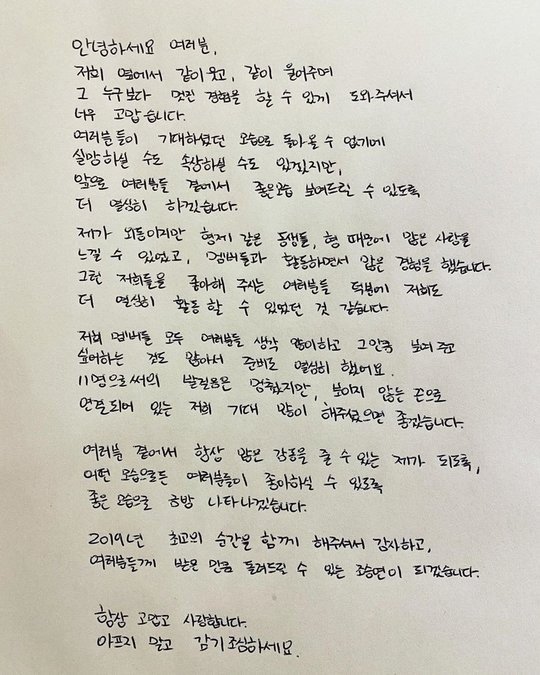 안녕하세요 여러분,
저희 옆에서 같이 웃고, 같이 울어주며
그 누구보다 멋진 경험을 할 수 있게 도와주셔서
너무 고맙습니다.
여러분들이 기대하셨던 모습으로 돌아올 수 없기에
실망하실 수도 속상하실 수도 있겠지만,
앞으로 여러분들 곁에서 좋은모습 보여드릴 수 있도록
더 열심히 하겠습니다.
제가 외동이지만 형제 같은 동생들, 형 때문에 많은 사랑을
느낄 수 있었고, 멤버들과 활동하면서 많은 경험을 했습니다.
그런 저희들을 좋아해 주시는 여러분들 덕분에 저희도
더 열심히 활동 할 수 있었던 것 같습니다.
저희 멤버들 모두 여러분들 생각 많이하고 그만큼 보여 주고
싶어하는 것도 많아서 준비도 열심히 했어요.
11명으로써의 발걸음은 멈췄지만, 보이지 않는 끈으로
연결되어 있는 저희 기대 많이 해주셨으면 좋겠습니다.
여러분 곁에서 항상 많은 감동을 줄 수 있는 제가 되도록,
어떤 모습으로든 여러분들이 좋아하실 수 있도록
좋은 모습으로 금방 나타나겠습니다.
2019년 최고의 순간을 함께 해주셔서 감사하고,
여러분들께 받은 만큼 돌려드릴 수 있는 조승연이 되겠습니다.
항상 고맙고 사랑합니다.
아프지 말고 감기조심하세요.